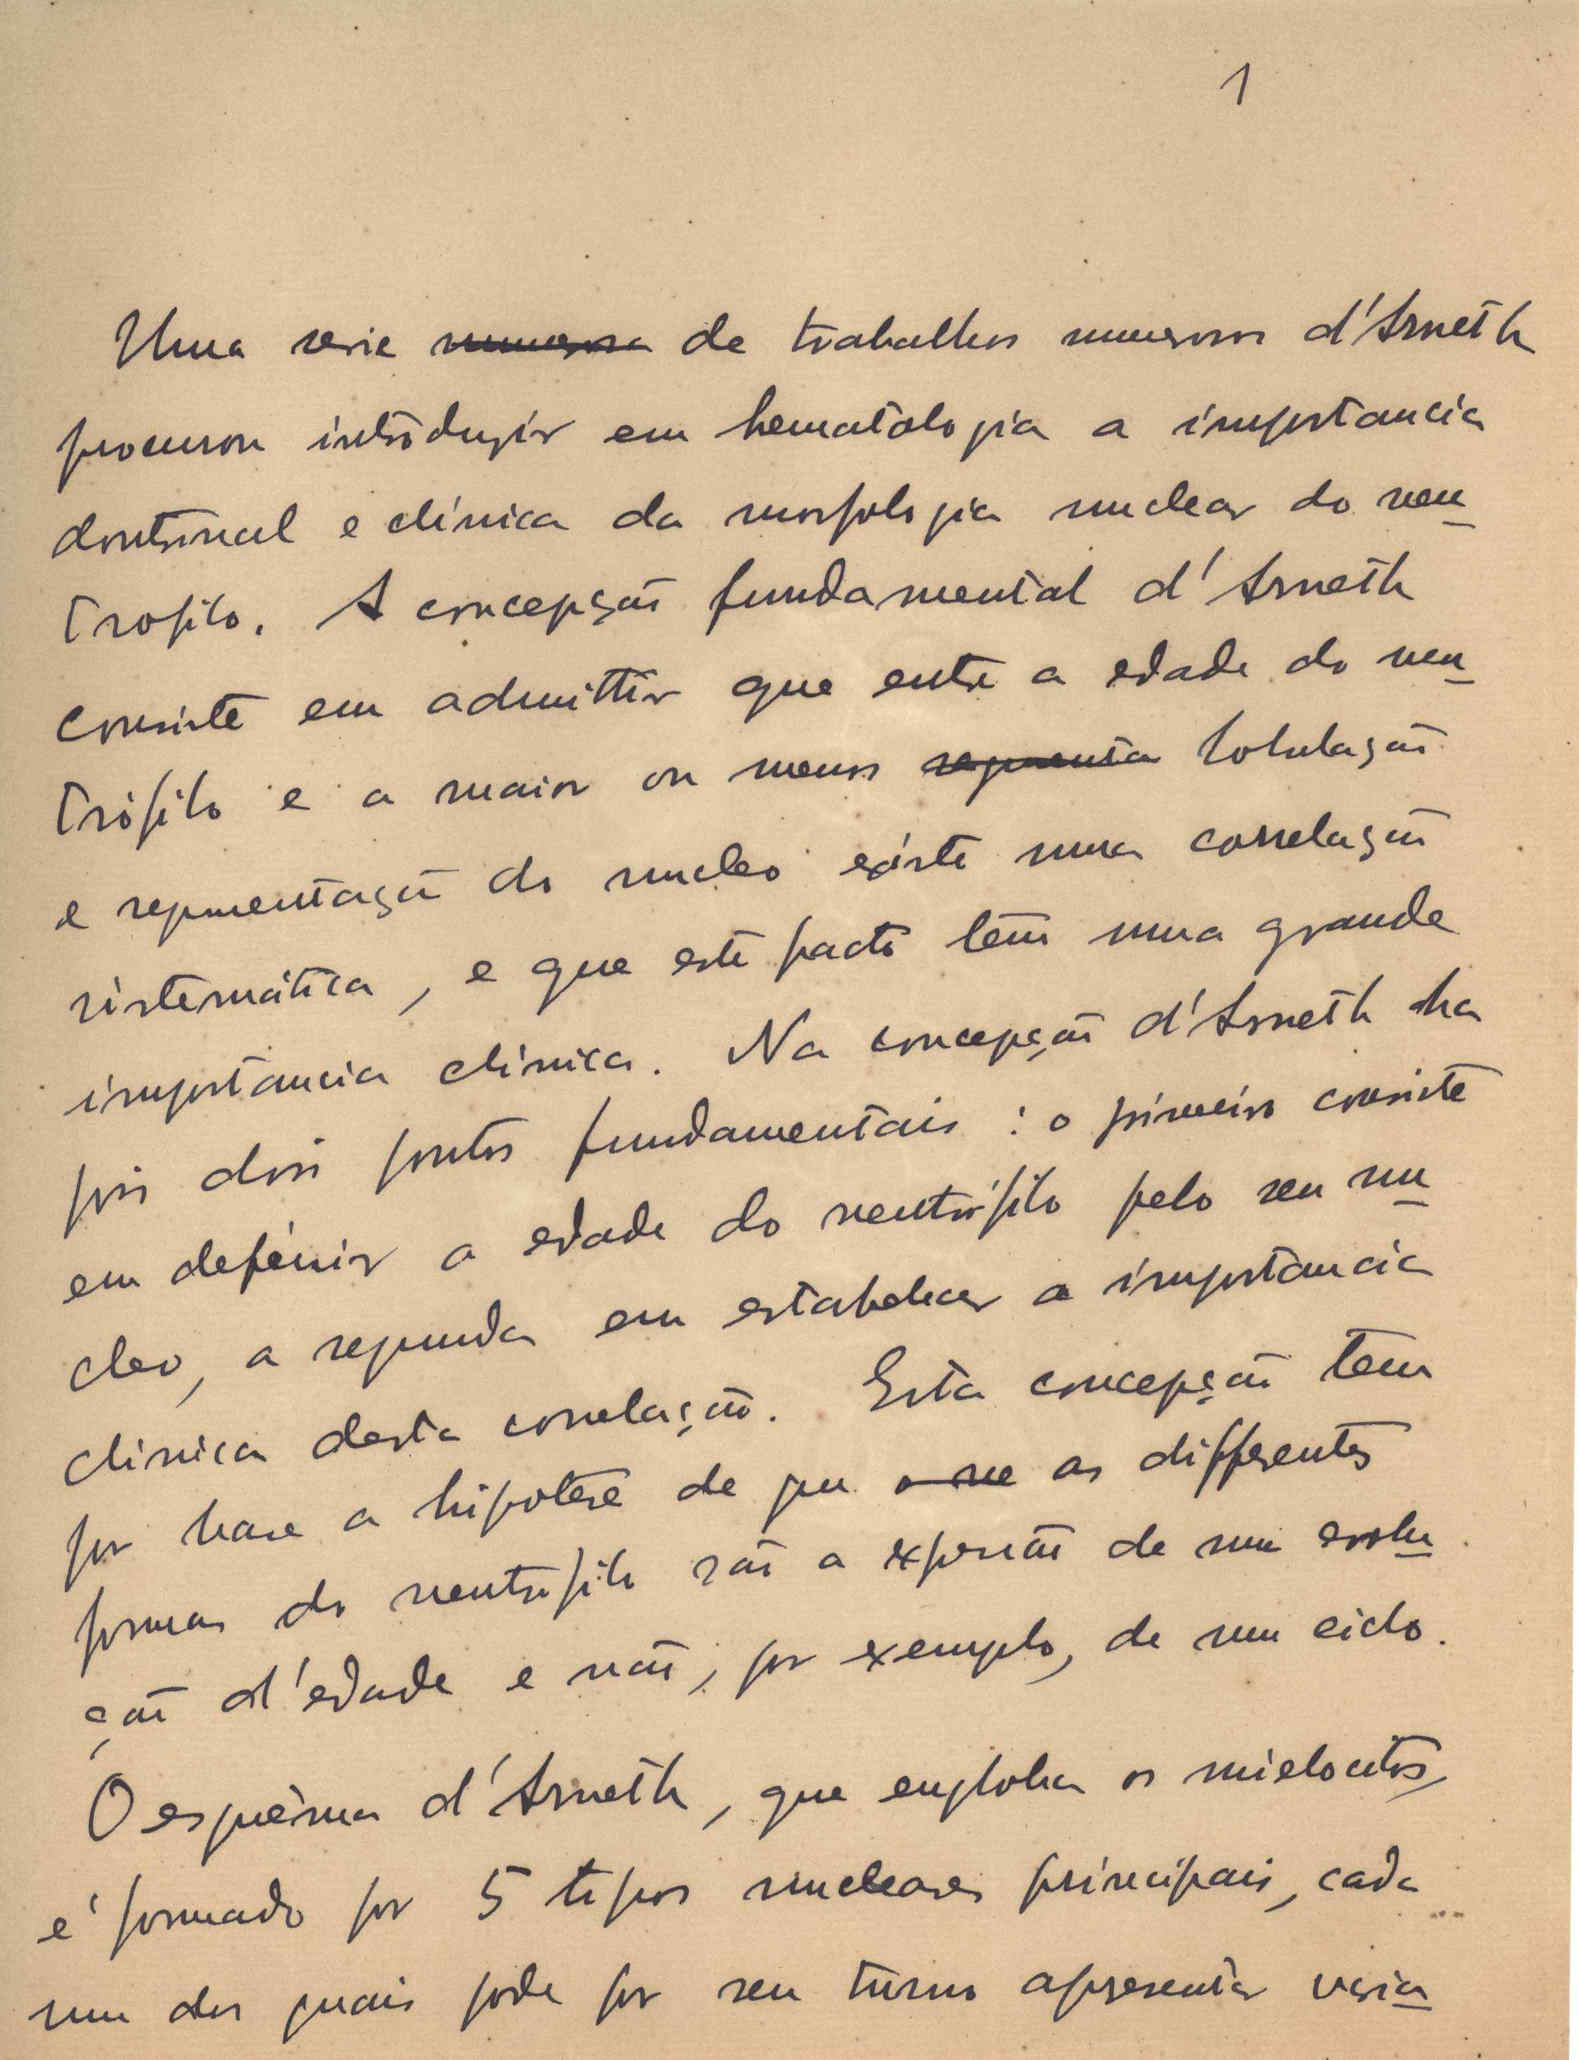 1
Uma serie numerosa de trabalhos numerosos d'Arneth
procurou introduzir em hematologia a importancia
doutrinal e clínica da morfologia nuclear do neu
trofilo. A concepção fundamental d'Arneth
consiste em admittir que entre a edade do neu
trófilo e a maior ou menos segmenta lobulação
e segmentação do nucleo existe uma correlação
sistemática, e que este facto tem uma grande
importancia clínica. Na concepção d'Arneth ha
pois dois pontos fundamentais : o primeiro consiste
em definir a edade do neutrófilo pelo seu nu
cleo, a segunda em estabelecer a importancia
clinica desta correlação. Esta concepção tem
por base a hipotese de que o ne as differentes
formas do neutrofilo são a expressão de uma evolu
ção d'edade e não, por exemplo, de um ciclo.
O esquêma d'Arneth, que engloba os mielocitos,
é formado por 5 tipos nucleares principais, cada
um dos quais pode por seu turno apresentar varia